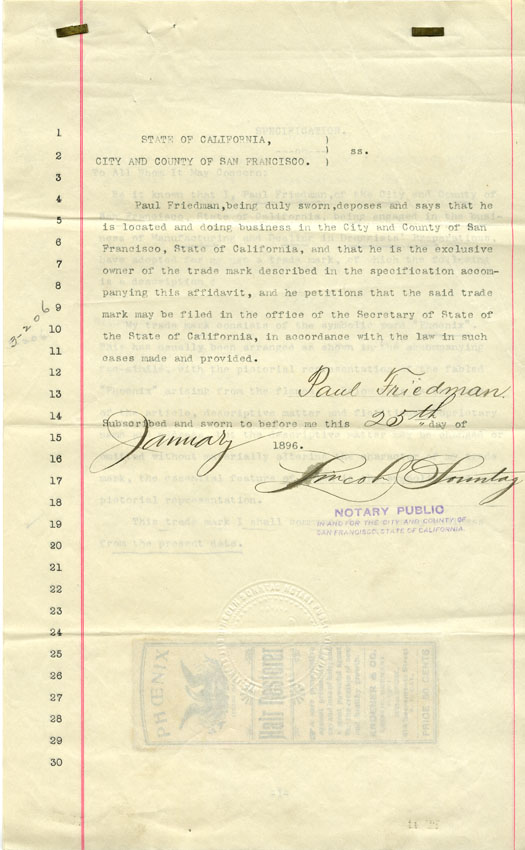 1
2
3
4
5
6
7
8
9
10
11
12
13
14
15
16
17
18
19
20
21
22
23
24
25
26
27
28
29
30
3-206
STATE OF CALIFORNIA, )
) ss.
CITY AND COUNTY OF SAN FRANCISCO. )
Paul Friedman,being duly sworn,deposes and says that he
is located and doing business in the City and County of San
Francisco, State of California, and that he is the exclusive
owner of the trade mark described in the specification accom-
panying this affidavit, and he petitions that the said trade
mark may be filed in the office of the Secretary of State of
the State of California, in accordance with the law in such
cases made and provided.
Paul Friedman.
Subscribed and sworn to before me this 25th day of
January 1896.
Lincoln Sonntag
NOTARY PUBLIC
IN AND FOR THE CITY AND COUNTY OF
SAN FRANCISCO, STATE OF CALIFORNIA.
SPECIFICATION.
To All Whom It May Concern:
pictorial representation.
This trade mark I shall
from the present date.
PHŒNIX
Hair Restorer
PRICE 50 CENTS